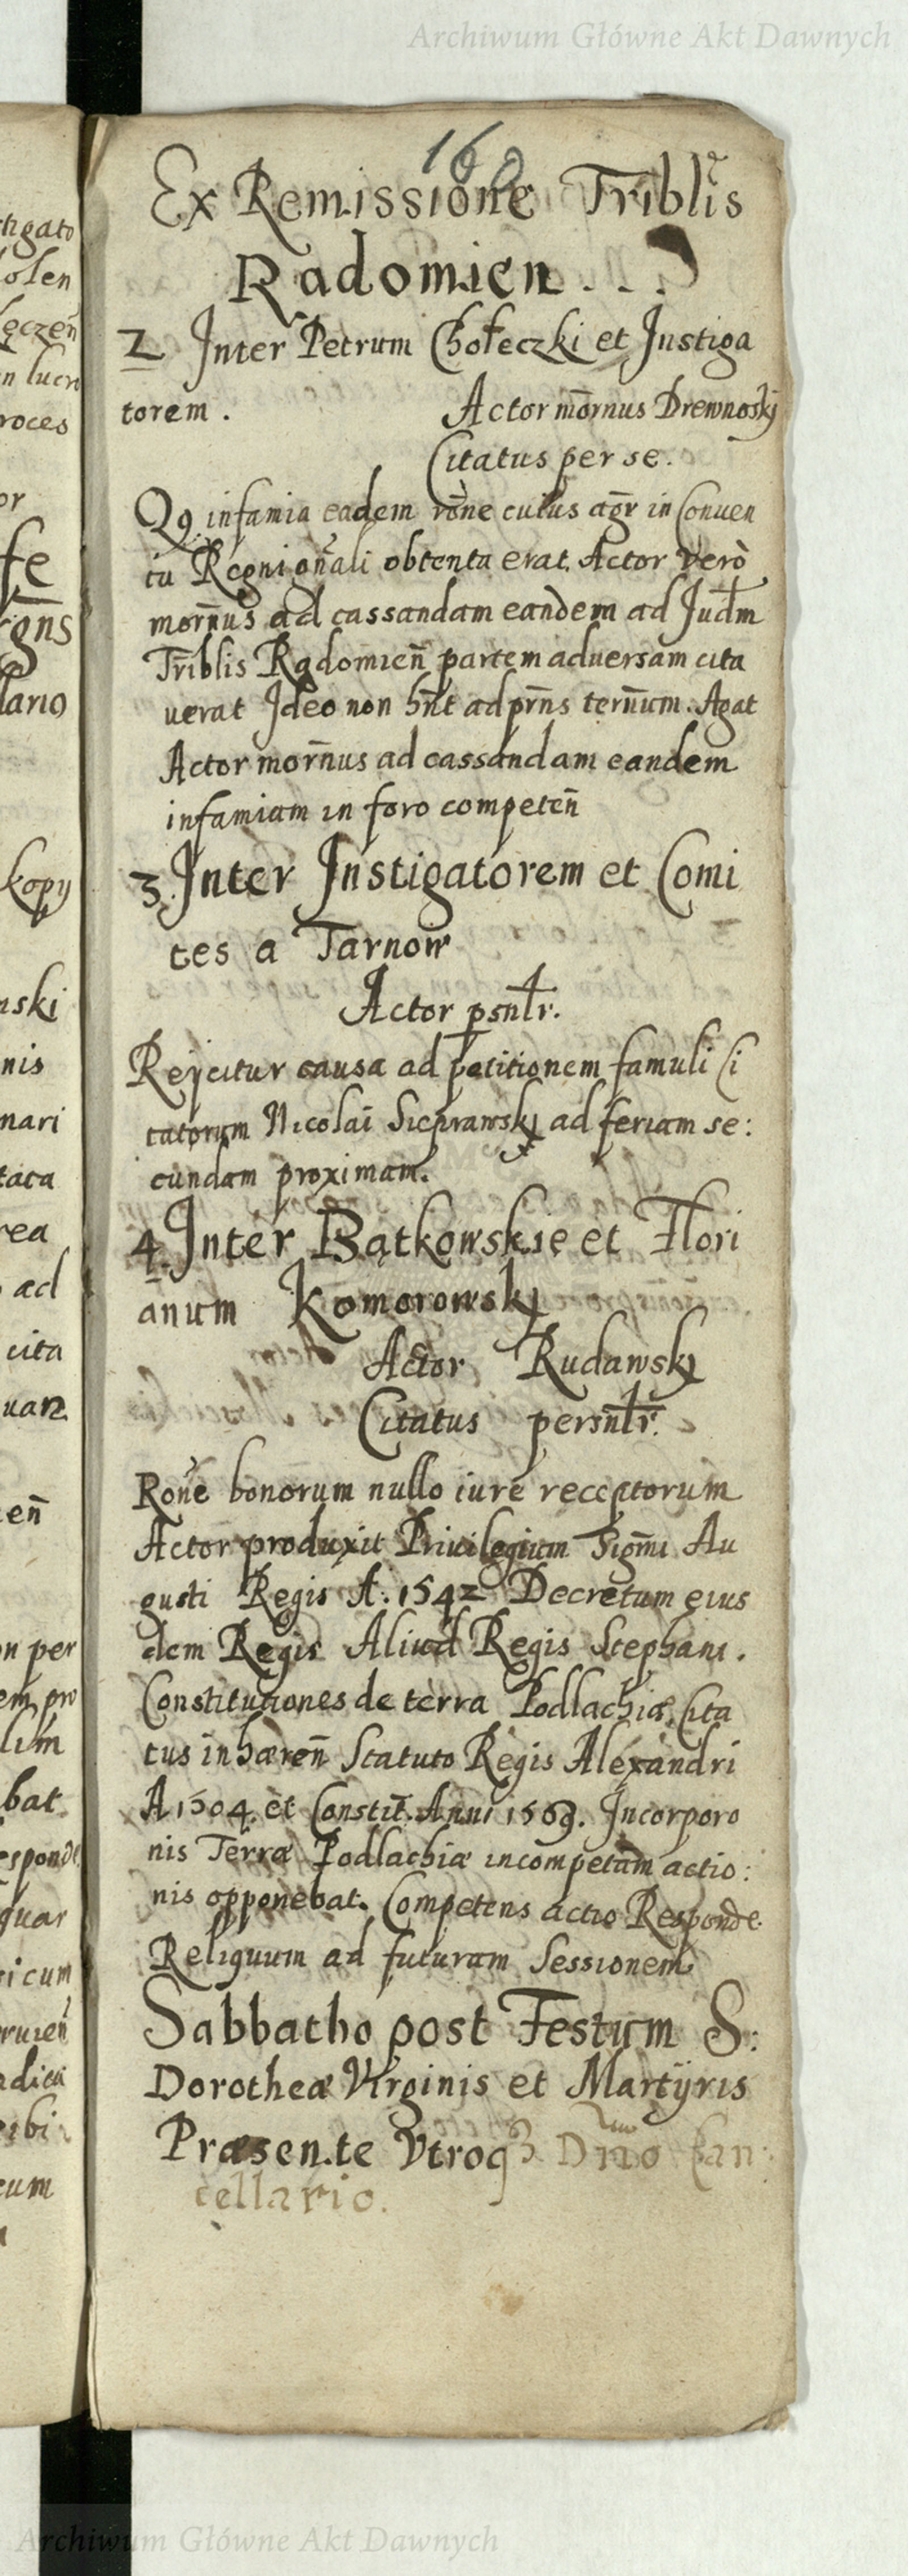 Archiwum Główne Akt Dawnych
160
Ex Remissione Triblis
Radomien...
2 Inter Petrum Chołeczki et Instiga
torem. Actor mornus Drewnosky
Citatus per se.
Qq infamia eadem rōne cuius agr in Conuen
tu Regni gn̄ali obtenta erat. Actor verò
morn̄us ad cassandam eandem ad Judm
Triblis Radomien̄ partem aduersam cita
uerat Ideo non hn̄t ad prn̄s tern̄um. Agat
Actor morn̄us ad cassandam eandem
infamiam in foro competen̄
3. Inter Instigatorem et Comi
tes a Tarnow
Actor psntr.
Reijcitur causa ad petitionem famuli Ci
tatorum Nicolai Sieprawsky ad feriam se:
cundam proximam.
4. Inter Bątkowskie et Flori
anum Komorowsky
Actor Rudawsky
Citatus persn̄tr.
Rōne bonorum nullo iure receptorum
Actor produxit Priuilegium Sigm̄i Au
gusti Regis A. 1542 Decretum eius
dem Regis Aliud Regis Stephani.
Constitutiones de terra Podlachiæ. Cita
tus inhæren̄ Statuto Regis Alexandri
A 1504. et Constit. Anni 1569. Incorporo
nis Terræ Podlachiæ incompetam actio:
nis opponebat. Competens actio Responde.
Reliquum ad futuram Sessionem
Sabbatho post Festum S:
Dorotheæ Virginis et Martÿris
Præsente Vtroq3 Dn̄o Can:
cellario.
Archiwum Główne Akt Dawnych